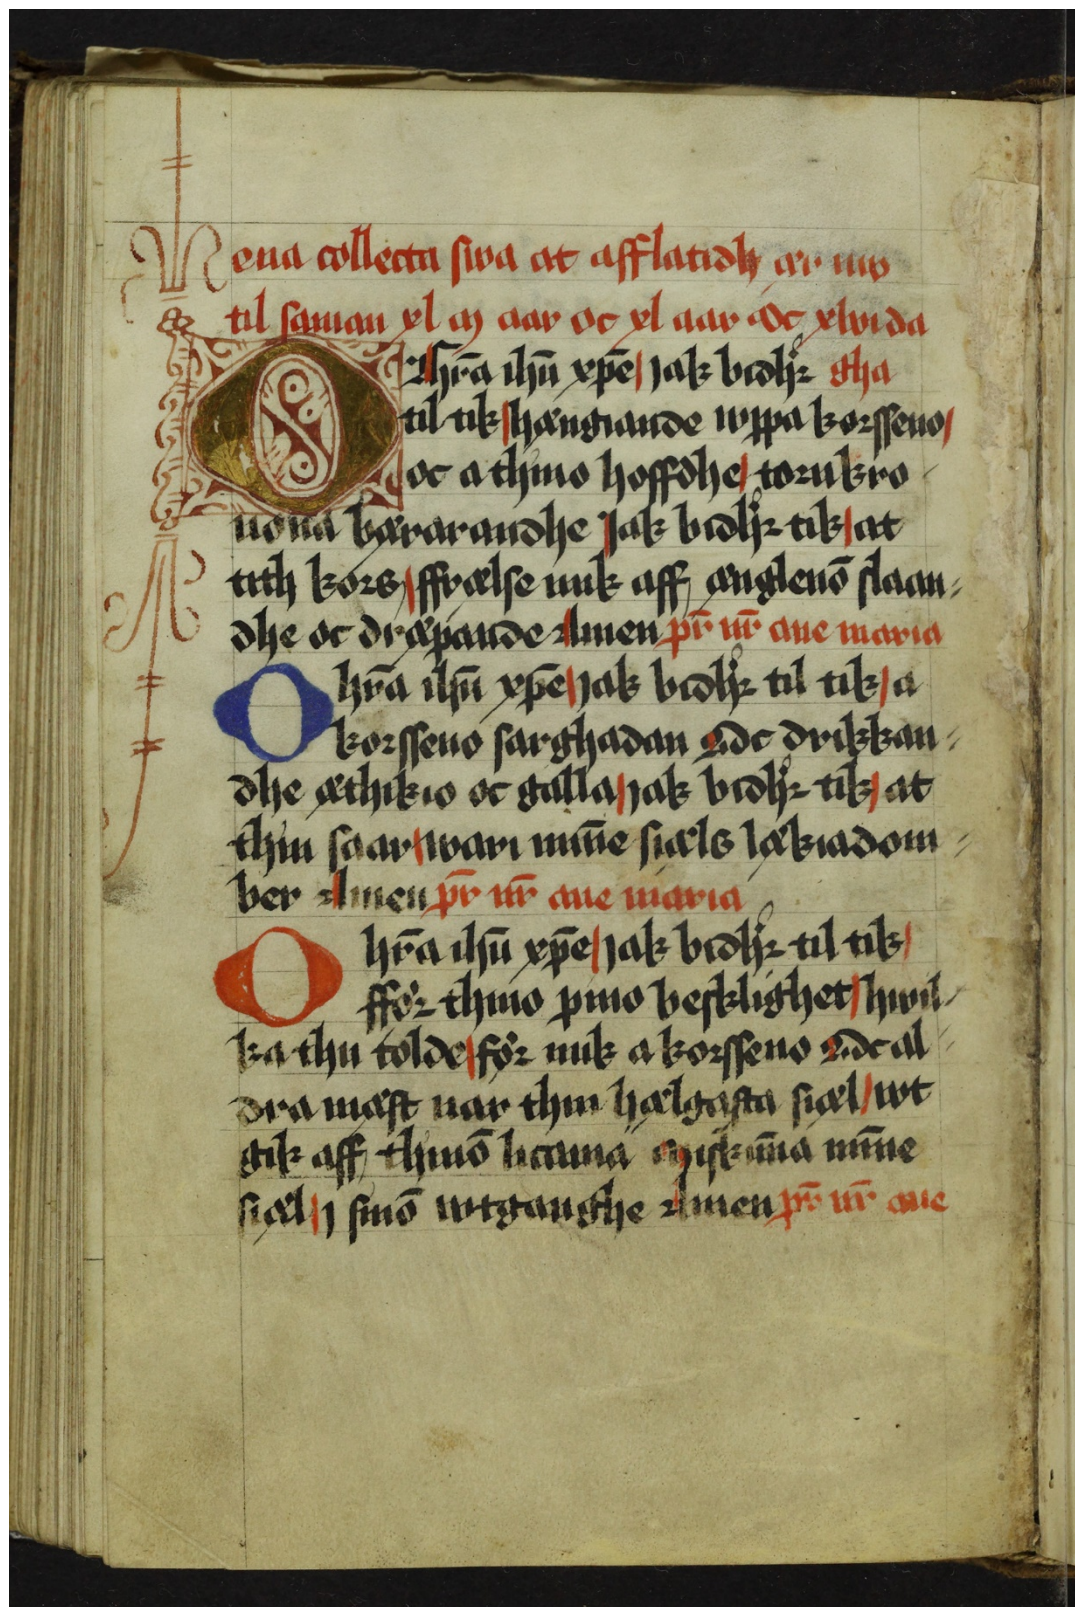 ena collecta swa at afflatidh ær nw
til saman xl M aar oc xl aar Oc xl wida
O Hr̄a ihū xp̄e jak bidhꝛ gha
til tik hængiande wppa korsseno
oc a thino hoffdhe tornkro
nona bærarandhe Jak bidhꝛ tik at
tith kors ffrælse mik aff ængleno̅ slaan-
dhe oc dræpande Amen pr̄ nr̄ aue maria
O hr̄a ihū xp̄e jak bidhꝛ til tik a
korsseno sarghadan Oc drikkan-
dhe æthikio oc galla jak bidhꝛ tik at
thin saar wari mīne siæls lækiadom-
ber Amen pr̄ nr̄ aue maria
O hr̄a ihū xp̄e jak bidhꝛ til tik
fför thino pino besklighet hwil-
ka thu tolde för mik a korsseno Oc al-
dra mæst nar thin hælgasta siæl wt
gik aff thino̅ licama Miskūna mīne
siæl j sino̅ wtganghe Amen pr̄ nr̄ aue